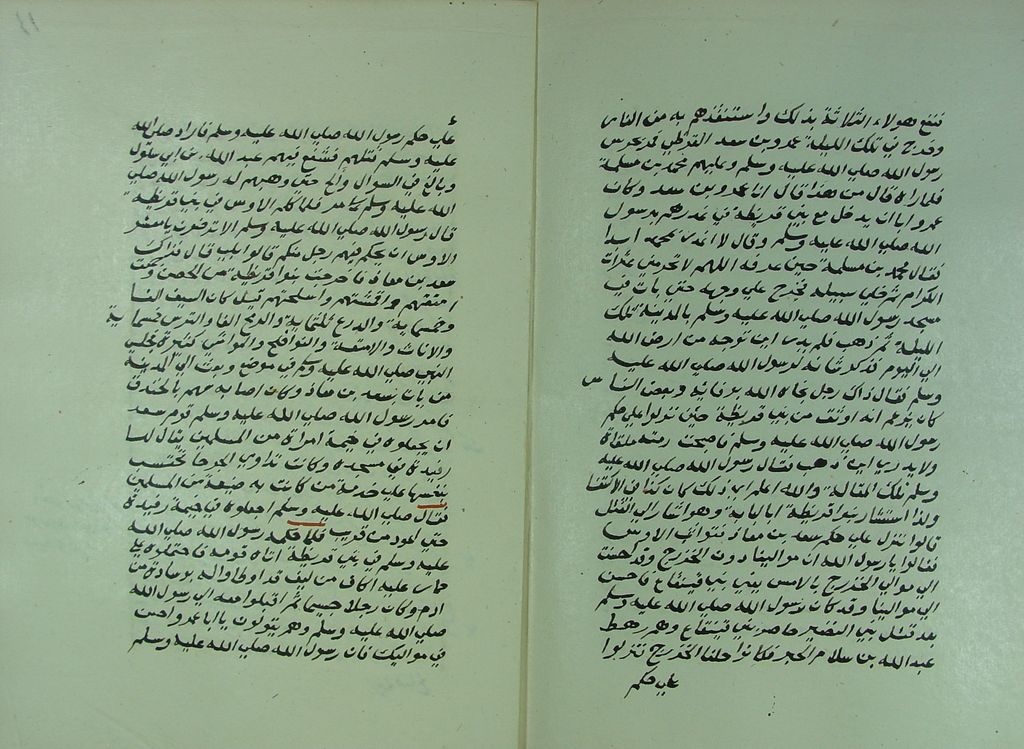 فتنع هولاء الثلاثة بذلك واستنقذهم به من النار
وخرج في تلك الليلة عمرو بن سعد القرظي فمر بحرس
رسول الله صلي الله عليه وسلم وعليهم محمد بن مسلمة
فلما راه قال من هذا قال انا عمرو بن سعد وكان
عمرو ابا ان يدخل مع بني قريظة في غدرهم برسول
الله صلي الله عليه وسلم وقال لا اغدر بمحمد ابدا
فقال محمد بن مسلمة حين عرفه اللهم لا تحرمني عثرات
الكرام ثم خلي سبيله فخرج علي وجهه حتي بات في
مسجد رسول الله صلي الله عليه وسلم بالمدينة تلك
الليلة ثم ذهب فلم يدر اين توجه من ارض الله
الي اليوم فذكر شانه لرسول الله صلي الله عليه
وسلم فقال ذاك رجل نجاه الله بوفائه وبعض الناس
كان يزعم انه اوثق من بني قريظة حين نزلوا علي حكم
رسول الله صلي الله عليه وسلم فاصبحت رمته ملقاة
ولا يدري اين ذهب فقال رسول الله صلي الله عليه
وسلم تلك المقالة والله اعلم اي ذلك كان كذا في الاكتفا
ولذا استشار بنوا قريظة ابا لبابه وهو اشار الي القتل
قالوا ننزل علي حكم سعد بن معاذ فتواثب الاوس
فقالوا يارسول الله ان موالينا دون الخزرج وقد احسنت
الي موالي الخزرج بالامس يعني بني قينقاع فاحسن
الي موالينا وقد كان رسول الله صلي الله عليه وسلم
بعد قتل بني النضير حاصر بني قينقاع وهم رهط
عبد الله بن سلام الحبر فكانوا حلفا الخزرج نزلوا
علي حكم
علي حكم رسول الله صلي الله عليه وسلم فاراد صلي الله
عليه وسلم قتلهم فشفع فيهم عبد الله بن ابي سلول
وبالغ في السوال والح حتي وهبهم له رسول الله صلي
الله عليه وسلم كامر فلما كلمه الاوس في بني قريظة
قال رسول الله صلي الله عليه وسلم الا ترضون يا معشر
الاوس ان يحكم فيهم رجل منكم قالوا بلي قال فذاك
سعد بن معاذ فاخرجت بنوا قريظة من الحصن وكتت
امتعتهم واقمشتهم واسلحتهم قيل كان السيف الفا
وخمسماية والدرع ثلثماية والرمح الفا والترس خمسماية
والاثاث والامتعة والنواضح والمواشي كثيرة فجلس
النبي صلي الله عليه وسلم في موضع وبعث الي المدينة
من يات بسعد بن معاذ وكان اصابه سهم بالخندق
فامر رسول الله صلي الله عليه وسلم قوم سعد
ان يجعلوه في خيمة امراة من المسلمين يقال لها
رفيدة في مسجده وكانت تداوي الجرحا تحتسب
بنفسها علي خدمة من كانت به ضيعة من المسلمين
فقال صلي الله عليه وسلم اجعلوه في خيمة رفيدة
حتي اعود من قريب فلما حكمه رسول الله صلي الله
عليه وسلم في بني قريظة اتاه قومه فاحتملوه علي
حمار عليه اكاف من ليف قد اوطاوا له بوسادة من
ادم وكان رجلا جسيما ثم اقبلوا معه الي رسول الله
صلي الله عليه وسلم وهم يقولون يا ابا عمرو احسن
في مواليك فان رسول الله صلي الله عليه وسلم